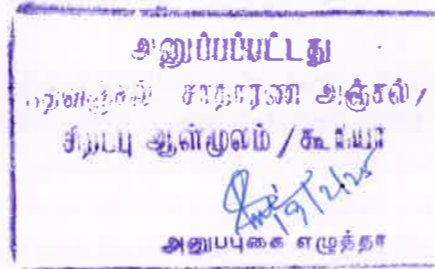 அனுப்பப்பட்டது
சாதாரண அஞ்சல்/
சிறப்பு ஆள்மூலம் / கூரியர்
19/2/25
அனுப்புகை எழுத்தர்